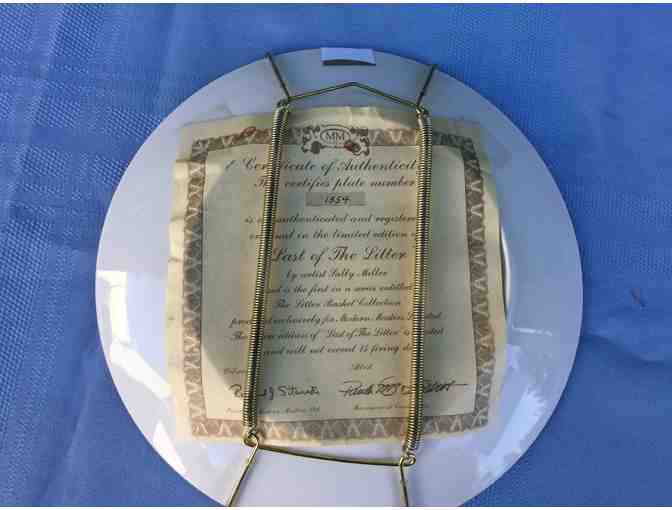 MM
Certificate of Authenticit
certifies plate number
1554
is authenticated and registere
in the limited edition
Last of The Litter
by artist Sally Miller
is the first in a series entitled
The Litter Basket Collection
exclusively for Modern Masters
The edition of "Last of The Litter" is
and will not exceed 15 firing